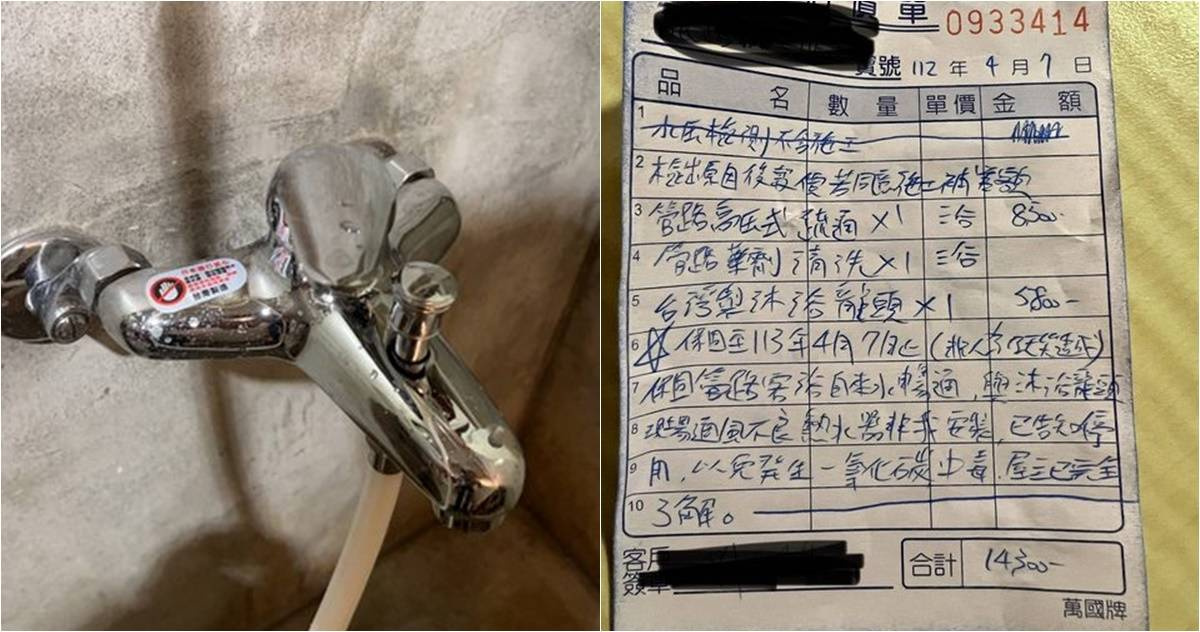 台灣製造
單 0933414
寶號 112 年 4 月 7 日
品 名 數 量 單價 金 額
1 水压檢測不含施工
2 檢出原因後報價若同意施工補差額
3 管路高压式 疏通 X1 三合 8500-
4 管路藥劑清洗 X1 三合
5 台灣製沐浴龍頭 X1 5800-
6 保固至113年4月7日止(非人為因素造成)
7 保固管路案浴自來水暢通,與沐浴龍頭
8 現場通風不良熱水器非我安裝,已告知停
9 用,以免發生一氧化碳中毒.屋主已完全
10 了解。
客戶
簽章
合計 14300-
萬國牌